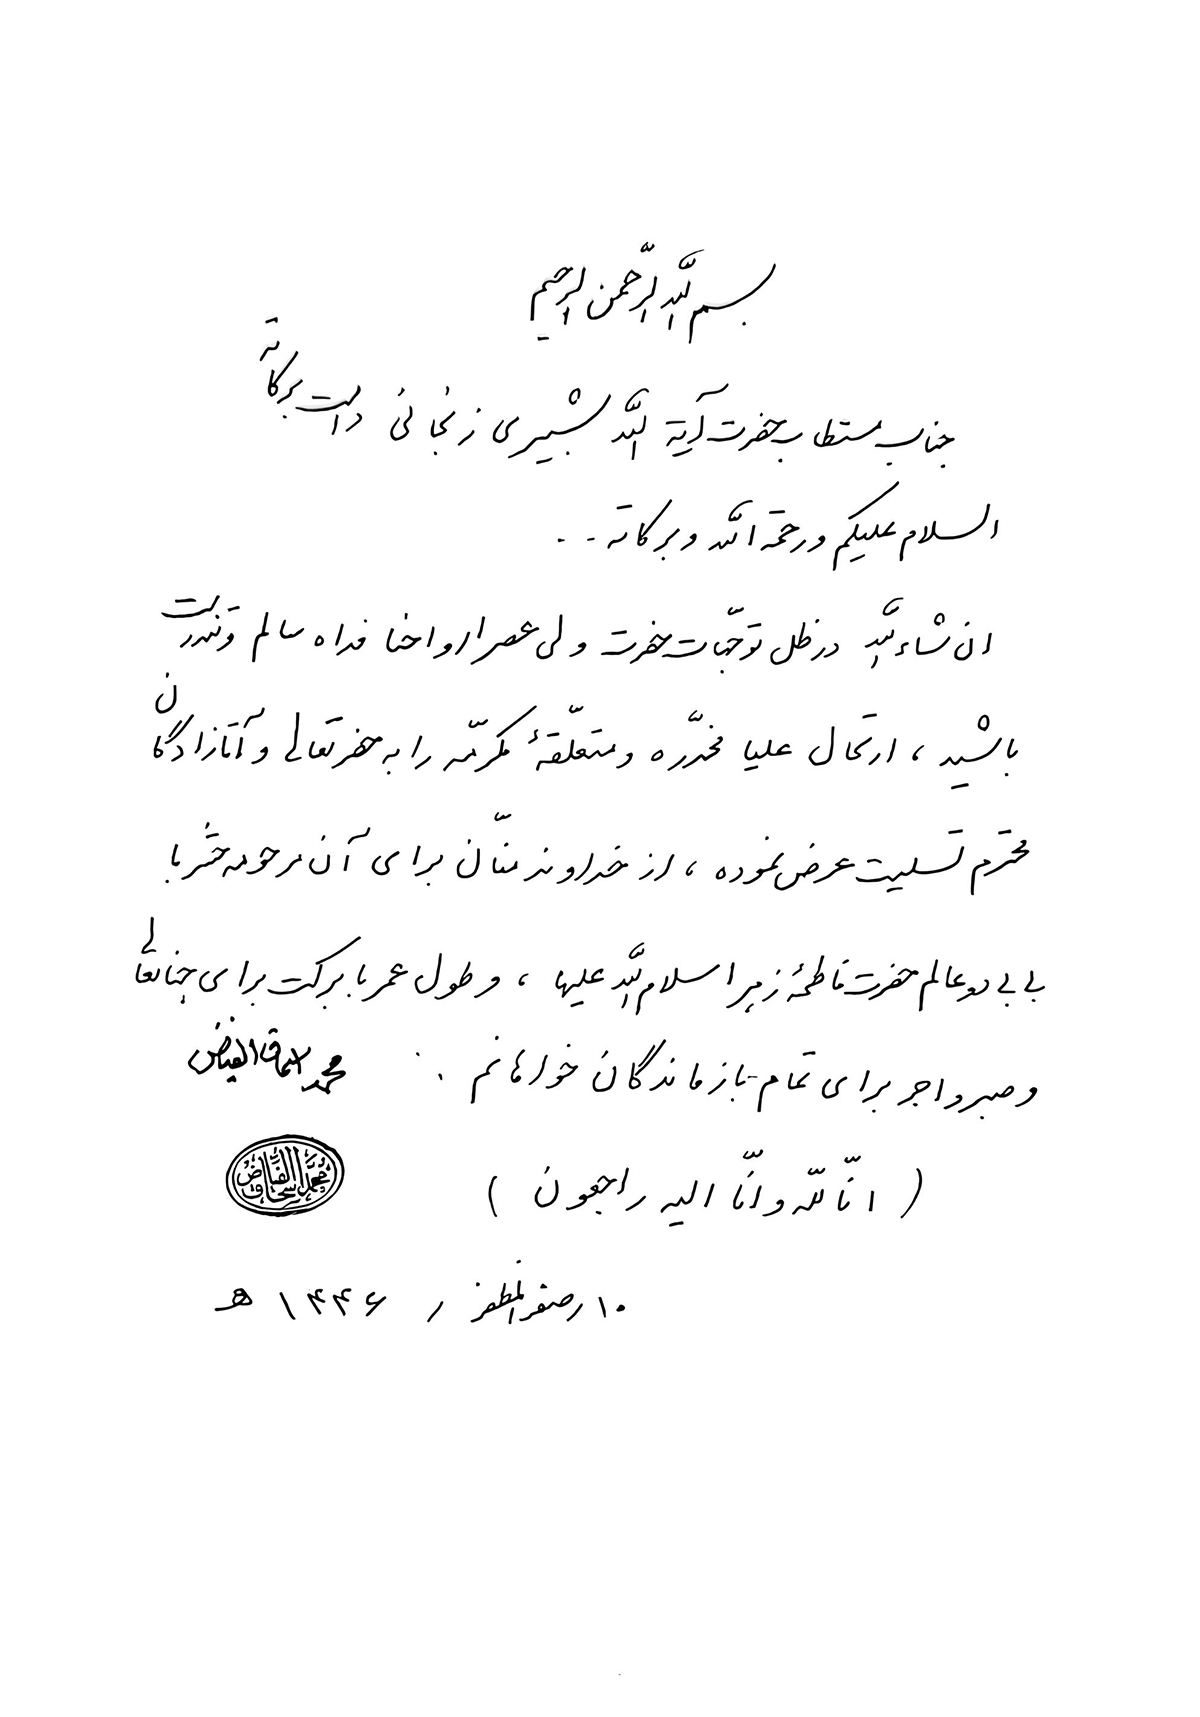 بسم الله الرّحمن الرحیم
جناب مستطاب حضرت آیة الله شبیری زنجانی دامت برکاته
السلام علیکم ورحمة الله وبرکاته ...
ان شاء الله در ظل توجّهات حضرت ولی عصر ارواحنا فداه سالم وتندرست
باشید ، ارتحال علیا مخدّره ومتعلّقهٔ مکرّمه را به حضرتعالی و آقازادگان
محترم تسلیت عرض نموده ، از خداوند منّان برای آن مرحومه حشر با
بی بی دو عالم حضرت فاطمهٔ زهرا سلام الله علیها ، وطول عمر با برکت برای جنابعالی
وصبر واجر برای تمام بازماندگان خواهانم .
محمد اسحاق الفیاض
( انّا لله وانّا الیه راجعون )
محمد إسحاق الفیّاض
۱۰ / صفر المظفر / ۱۴۴۶ هـ